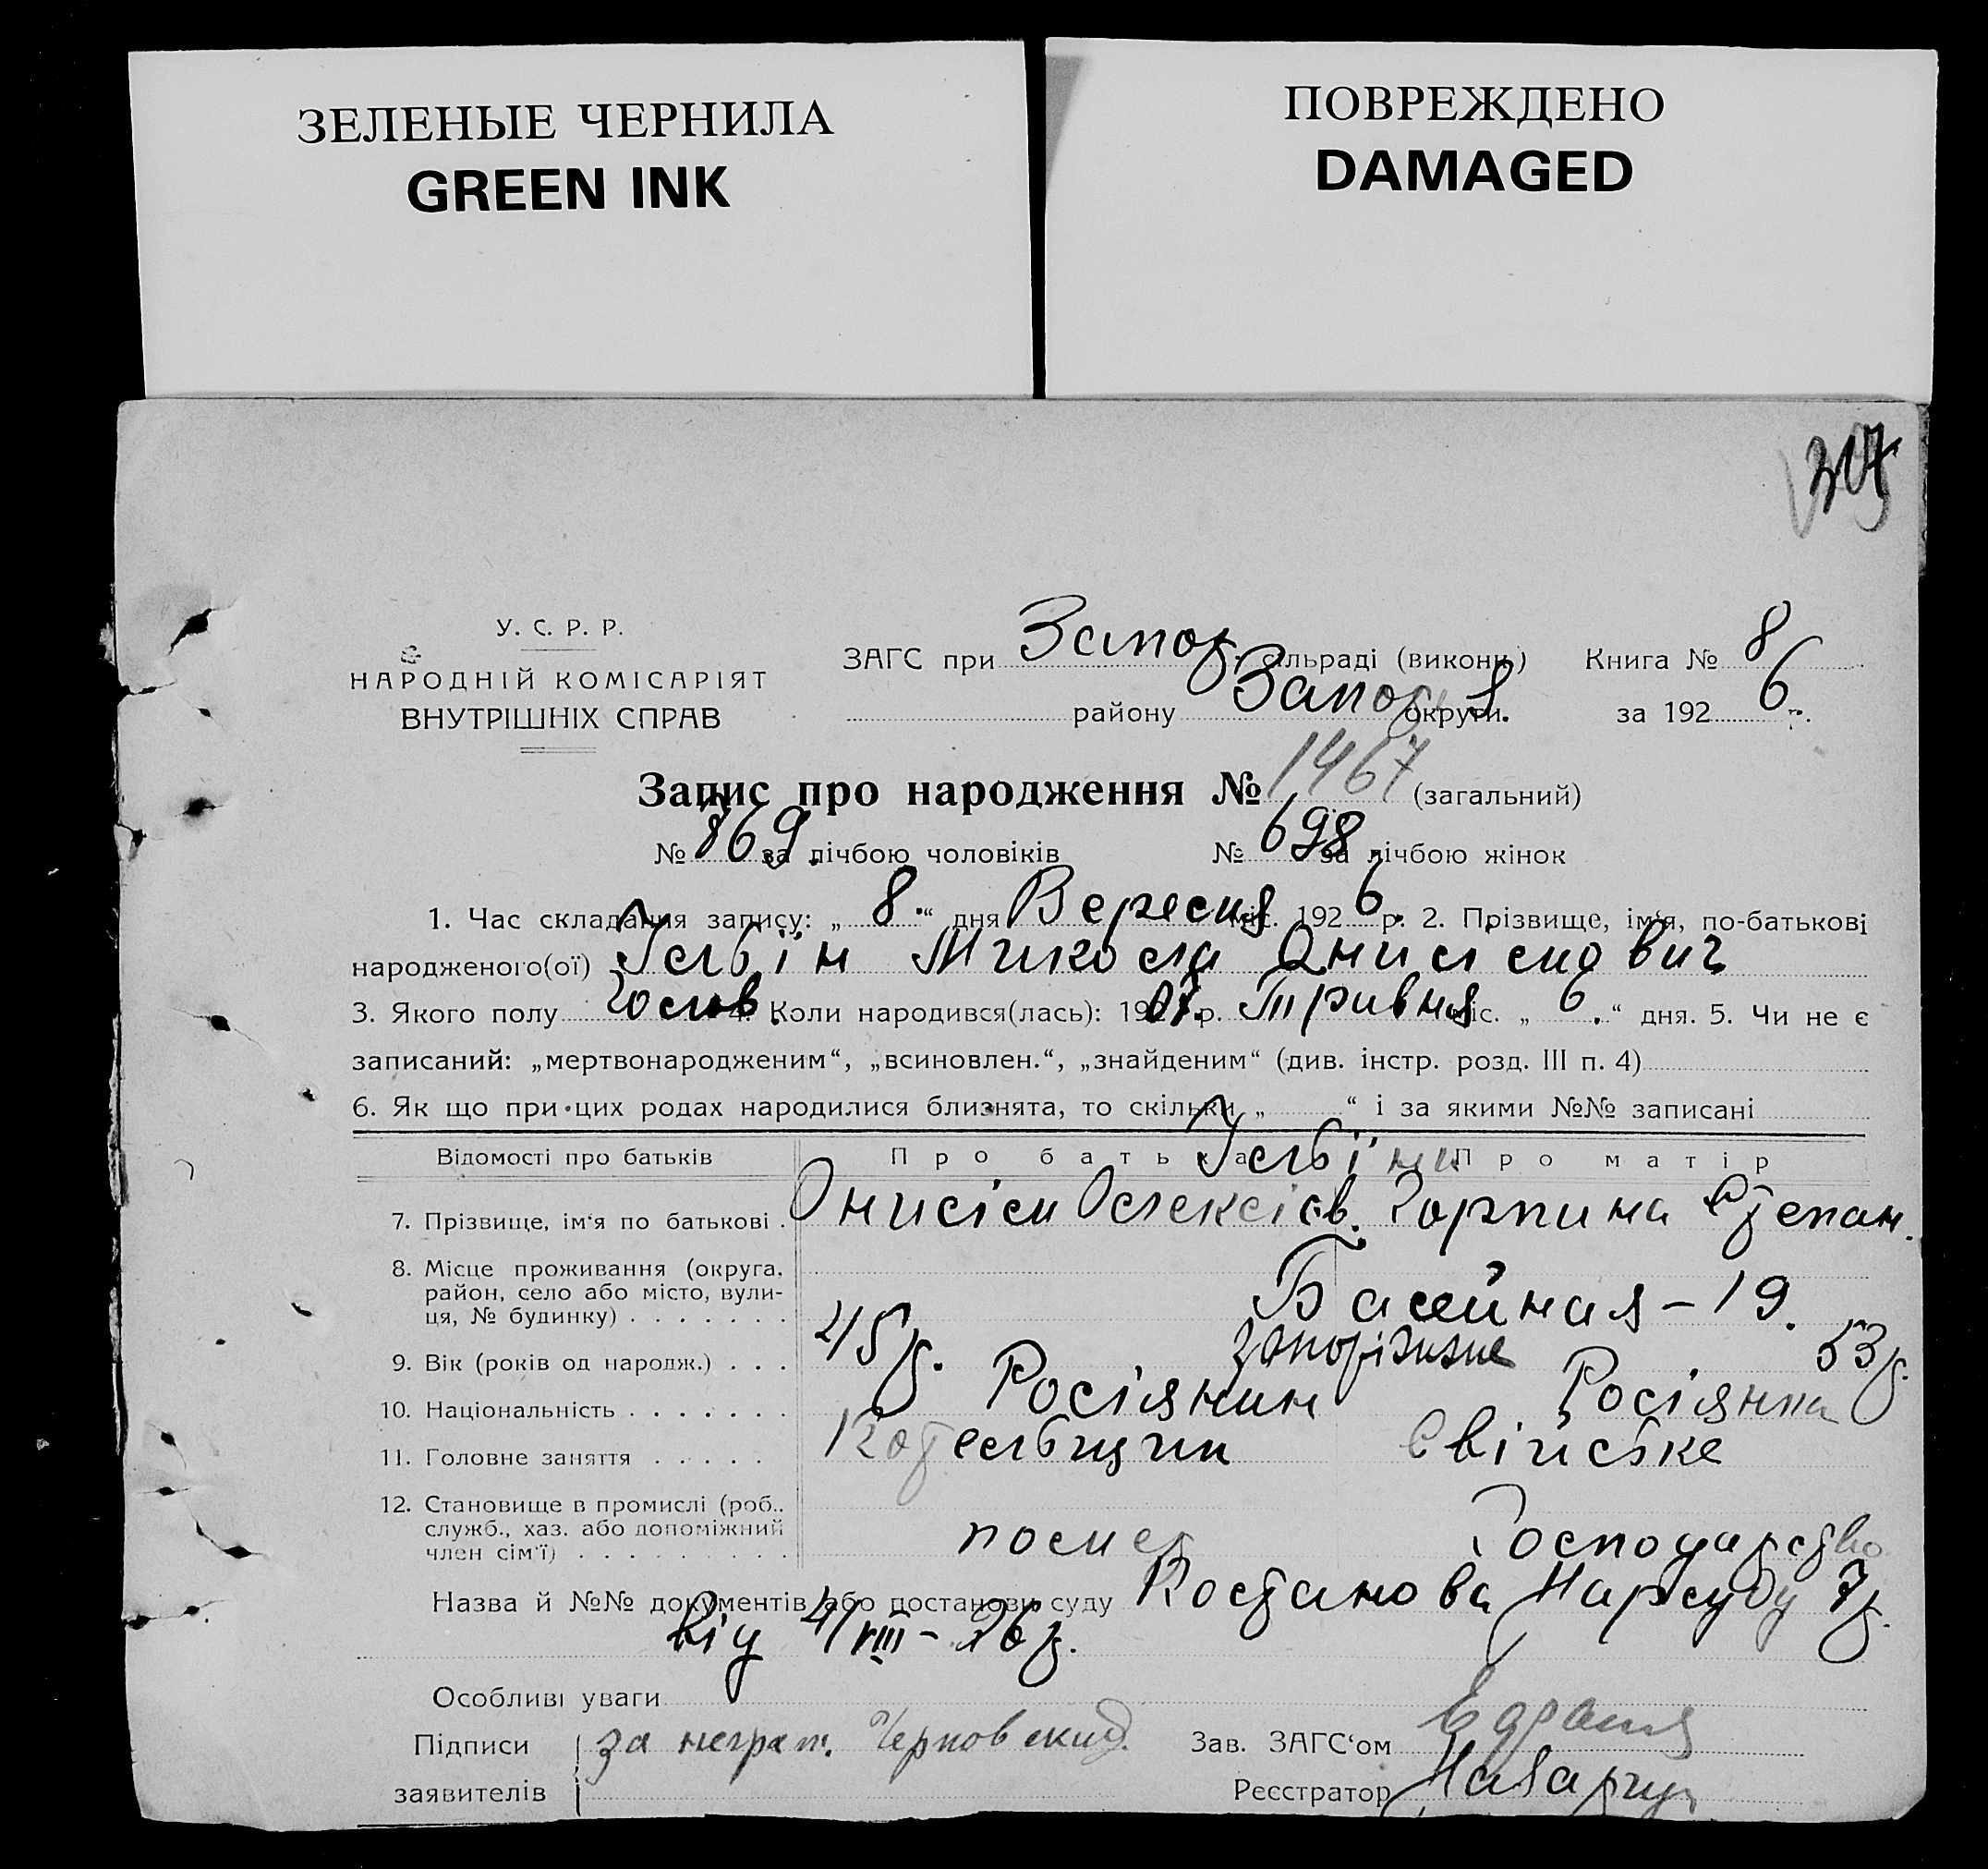 ЗЕЛЕНЫЕ ЧЕРНИЛА
GREEN INK
ПОВРЕЖДЕНО
DAMAGED
У. С. Р. Р.
НАРОДНІЙ КОМІСАРІЯТ
ВНУТРІШНІХ СПРАВ
ЗАГС при Запор. сільраді (викони.) Книга № 8
району Запор. округи. за 1926 р.
Запис про народження № 1467 (загальний)
№ 869. за лічбою чоловіків № 698 за лічбою жінок
1. Час складання запису: „ 8. “ дня Вересня міс. 1926 р. 2. Прізвище, ім'я, по-батькові
народженого(ої) Микола Онисімович
3. Якого полу Чолов. 4. Коли народився(лась): р. Травня міс. „ 6. “ дня. 5. Чи не є
записаний: „мертвонародженим“, „всиновлен.“, „знайденим“ (див. інстр. розд. III п. 4)
6. Як що при цих родах народилися близнята, то скільки „ “ і за якими №№ записані
Відомості про батьків Про батька Про матір
7. Прізвище, ім'я по батькові . Онисім Олексієв. Горпина Степан.
8. Місце проживання (округа,
район, село або місто, вули-
ця, № будинку) . . . . . . . Басейная – 19.
Запоріжже
9. Вік (років од народж.) . . . 45 р. 53 р.
10. Національність . . . . . . . Росіянин Росіянка
11. Головне заняття . . . . . Котельщик Свійське
12. Становище в промислі (роб.,
служб., хаз. або допоміжний
член сім'ї) . . . . . . . . . Господарство
Назва й №№ документів або постанови суду Постанова Нарсуду 7 р.
від 4/VIII – 26 р.
Особливі уваги
Підписи за неграм. Зав. ЗАГС'ом
заявителів Реєстратор